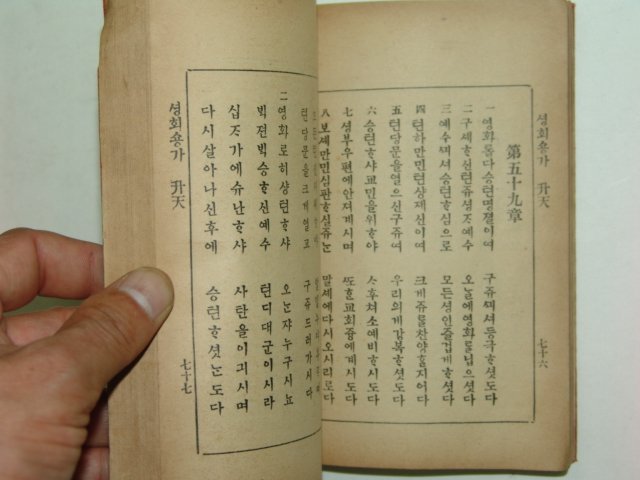 셩회숑가 升天 七十六
第五十九章
一 영화롭다승텬명졀이여 구쥬ᄭᅴ셔등극ᄒᆞ셧도다
二 구셰ᄒᆞ신텬쥬셩ᄌᆞ예수 오ᄂᆞᆯ에영화를닙으셧다
三 예수ᄭᅴ셔승텬ᄒᆞ심으로 모든셩인즐겁게ᄒᆞ셧다
四 텬하만민텬샹재신이여 크게쥬를찬양ᄒᆞᆯ지어다
五 텬당문을열으신구쥬여 우리의게강복ᄒᆞ셧도다
六 승텬ᄒᆞ샤교민을위ᄒᆞ야 ᄉᆞ후쳐소예비ᄒᆞ시도다
七 셩부우편에안져계시며 ᄯᅩᄒᆞᆫ교회즁에계시도다
八 보셰만민심판ᄒᆞ실쥬ᄂᆞᆫ 말셰에다시오시리로다
텬당문을크게열고 구쥬드러가시다
二 영화로히샹텬ᄒᆞ샤 오ᄂᆞᆫ쟈누구시뇨
ᄇᆡᆨ젼ᄇᆡᆨ승ᄒᆞ신예수 텬디대군이시라
십ᄌᆞ가에슈난ᄒᆞ샤 사탄을이긔시며
다시살아나신후에 승텬ᄒᆞ셧ᄂᆞᆫ도다
셩회숑가 升天 七十七